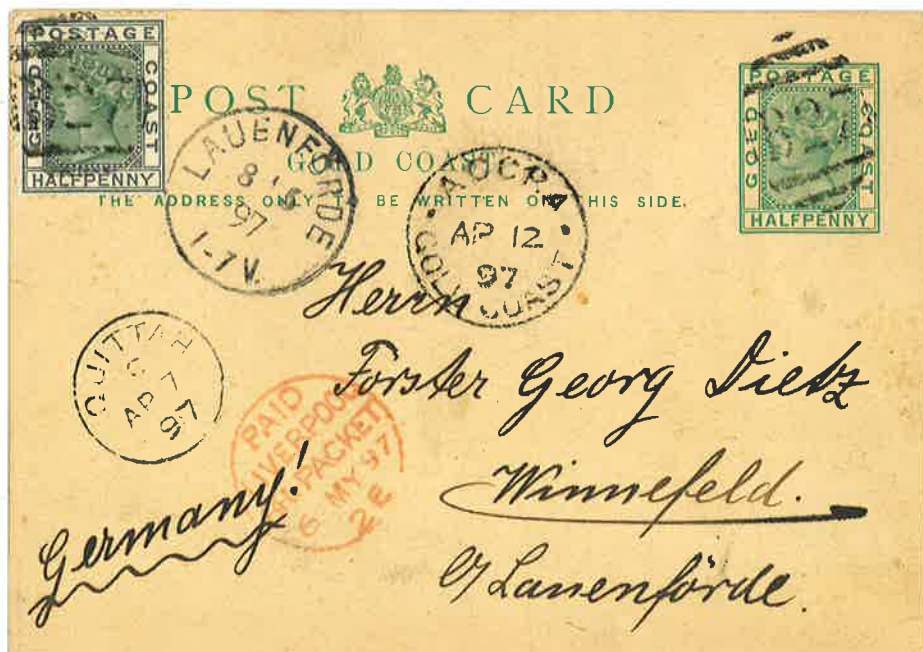 POSTAGE
GOLD
COAST
HALFPENNY
POST CARD
GOLD COAST
THE ADDRESS ONLY TO BE WRITTEN ON THIS SIDE.
POSTAGE
GOLD
COAST
HALFPENNY
LAUENFÖRDE
8 5
97
1-7 V.
ACCRA
AP 12
97
GOLD COAST
QUITTAH
AP 7
97
PAID
LIVERPOOL
PACKET
6 MY 97
2E
Herrn
Förster Georg Dietz
Winnefeld.
b/ Lauenförde.
Germany!